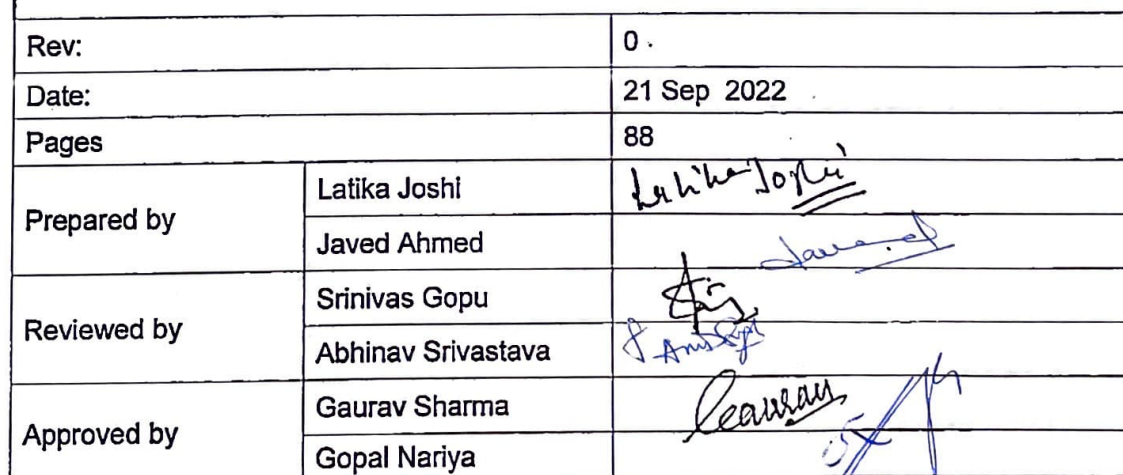 Rev: 0 .
Date: 21 Sep 2022
Pages 88
Prepared by Latika Joshi Latika Joshi
Javed Ahmed Javed
Reviewed by Srinivas Gopu
Abhinav Srivastava
Approved by Gaurav Sharma Gaurav
Gopal Nariya